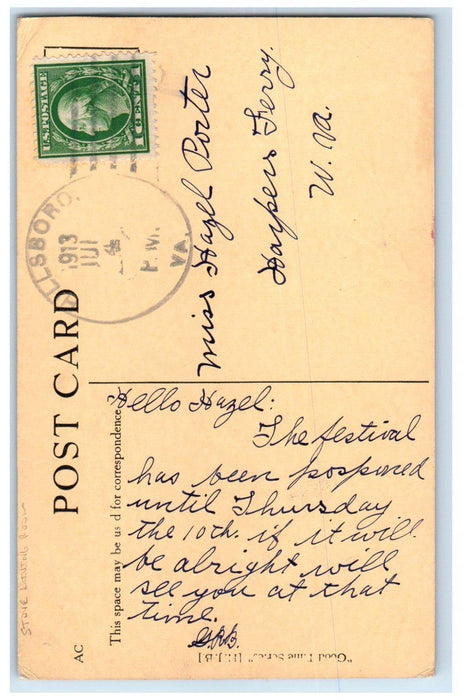 U.S. POSTAGE
1 CENT 1
LLSBORO,
1913
4
P.M.
VA.
POST CARD
Miss Hazel Porter
Harpers Ferry.
W. Va.
This space may be us d for correspondence.
Hello Hazel:
The festival
has been posponed
until Thursday
the 10th. if it will
be alright will
see you at that
time.
G.R.B.
AC